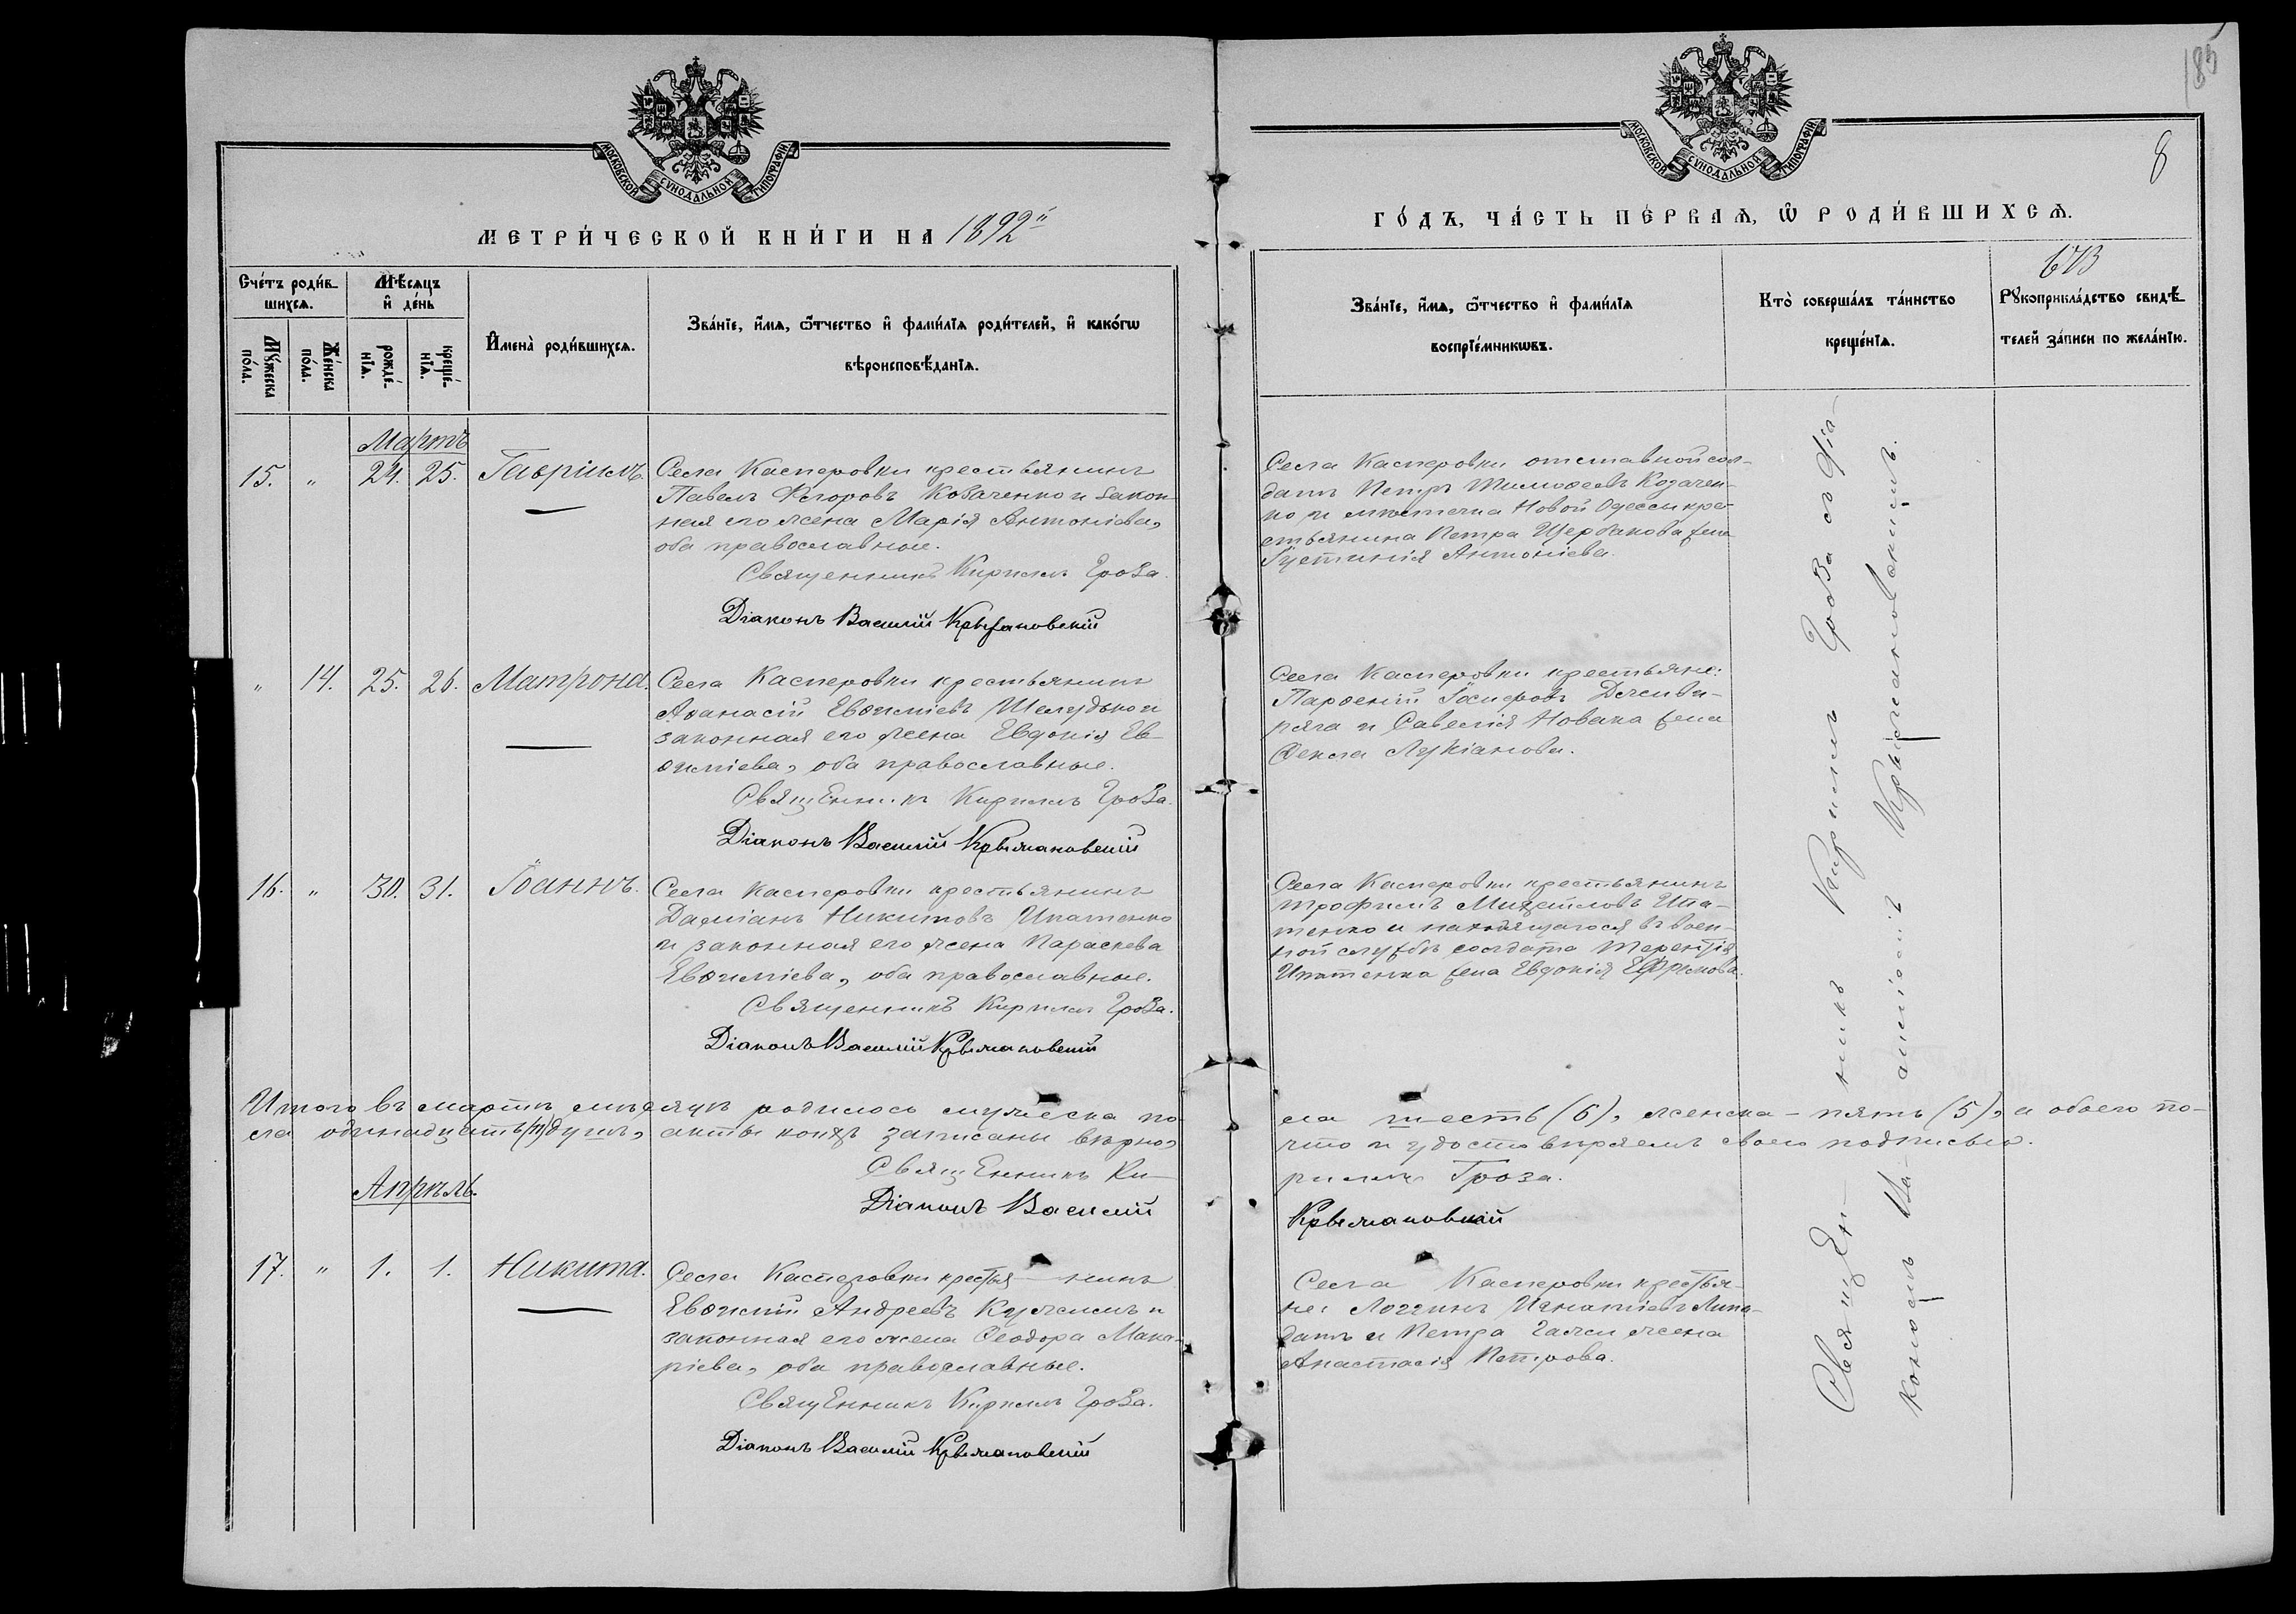 185
8
МОСКОВСКОЙ СѴНОДАЛЬНОЙ ТИПОГРАФІИ
МОСКОВСКОЙ СѴНОДАЛЬНОЙ ТИПОГРАФІИ
МЕТРИ́ЧЕСКОЙ КНИ́ГИ НА 1892й
ГО́ДЪ, ЧА́СТЬ ПЕ́РВАѦ, Ѡ҆ РОДИ́ВШИХСѦ.
Сче́тъ роди́в-
шихсѧ.
Мꙋ́жеска по́ла.
Же́нска по́ла.
Мѣ́сѧцъ и҆ де́нь
рожде́-нїѧ.
креще́-нїѧ.
И҆мена̀ роди́вшихсѧ.
Зва́нїе, и҆́мѧ, ѻ҆́тчество и҆ фами́лїѧ роди́телей, и҆ како́гѡ
вѣроисповѣ́данїѧ.
Зва́нїе, и҆́мѧ, ѻ҆́тчество и҆ фами́лїѧ
воспрїе́мникѡвъ.
Кто̀ соверша́лъ та́инство
креще́нїѧ.
673
Рꙋкоприкла́дство свидѣ́-
телей за́писи по жела́нїю.
Мартъ
15. " 24. 25. Гавріилъ.
Села Касперовки крестьянинъ
Павелъ Ѳегоровъ Козаченко и закон-
ная его жена Марія Антоніева,
оба православные.
Священникъ Кириллъ Гроза.
Діаконъ Василій Крыжановскій
Села Касперовки отставной сол-
датъ Петръ Тимоѳеевъ Козачен-
ко и мѣстечка Новой Одессы кре-
стьянина Петра Щербакова жена
Іустинія Антоніева.
" 14. 25. 26. Матрона.
Села Касперовки крестьянинъ
Аѳанасій Евѳиміевъ Шелудько и
законная его жена Евдокія Ев-
ѳиміева, оба православные.
Священникъ Кириллъ Гроза.
Діаконъ Василій Крыжановскій
Села Касперовки крестьяне:
Парѳеній
и Савелія Новака жена
Ѳекла Лукіанова.
16. " 30. 31. Іоаннъ.
Села Касперовки крестьянинъ
Даміанъ Никитовъ Ипатенко
и законная его жена Параскева
Евѳиміева, оба православные.
Священникъ Кириллъ Гроза.
Діаконъ Василій Крыжановскій
Села Касперовки крестьянинъ
Трофимъ Михайловъ Ипа-
тенко и находящагося въ воен-
ной службѣ солдата Терентія
Ипатенка жена Евдокія Ефримова.
Итого въ мартѣ мѣсяцѣ родилось мужеска по-
ла шесть (6), женска - пять (5), а обоего по-
ла одинадцать (11) душъ, акты коихъ записаны вѣрно,
что и удостовѣряемъ своею подписью.
Священникъ Ки-
риллъ Гроза.
Діаконъ Василій
Крыжановскій
Апрѣль.
17. " 1. 1. Никита.
Села Касперовки крестья-нинъ
Евѳимій Андреевъ Кужсимъ и
законная его жена Ѳеодора Мака-
ріева, оба православные.
Священникъ Кириллъ Гроза.
Діаконъ Василій Крыжановскій
Села Касперовки крестья-
не: Логгинъ Игнатіевъ Липо-
датъ и Петра жена
Анастасія Петрова.
Священникъ Кириллъ Гроза съ діа-
кономъ Василіемъ Крыжановскимъ.